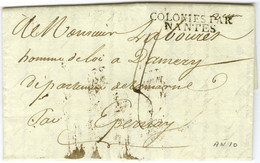 COLONIES PAR
NANTES
De Monsieur
homme de loi à Damery
département de la marne
par Epernay
AN 10